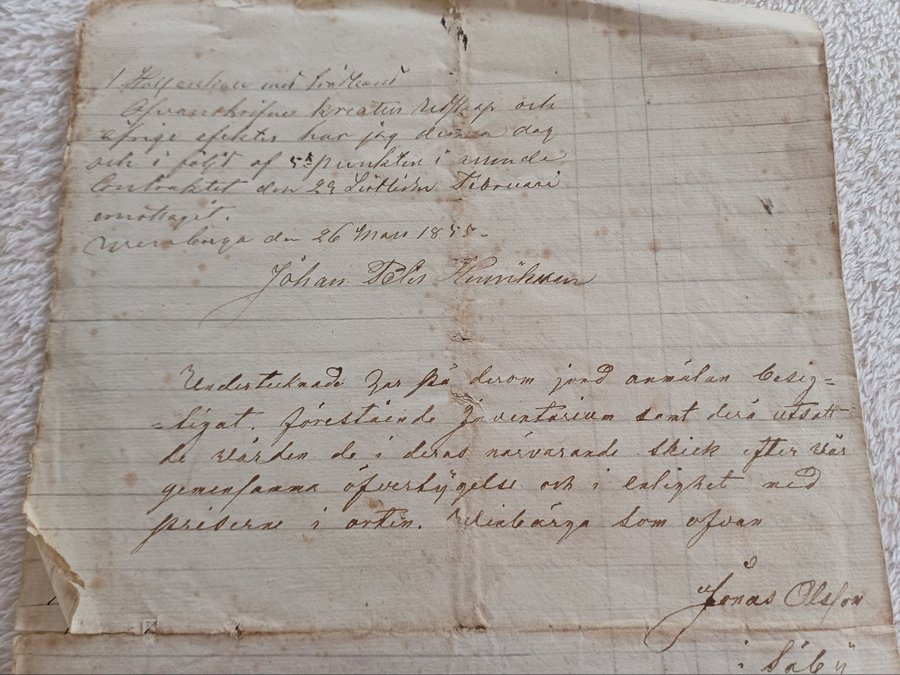 1 med
Ofvanskrifne kreatur redskap och
öfrige efekter har jag denna dag
och i följd af 5te punkten i
Contraktet den 23 sistliden Februari
emottagit.
den 26 Mars 1855
Johan Peter
Undertecknade har på derom jord anmälan besig=
=tigat förestående Inventarium samt derå utsatt=
de värden de i deras närvarande skick efter vår
gemensamma öfvertygelse och i enlighet med
priserne i orten. som ofvan
Jonas Olsson
i Säby